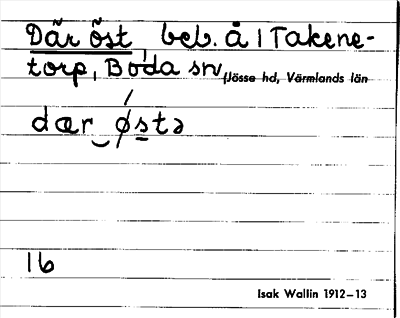 Där öst, beb. å 1 Takene-
torp, Boda sn, (Jösse hd, Värmlands län
dær‿ østə
16
Isak Wallin 1912–13